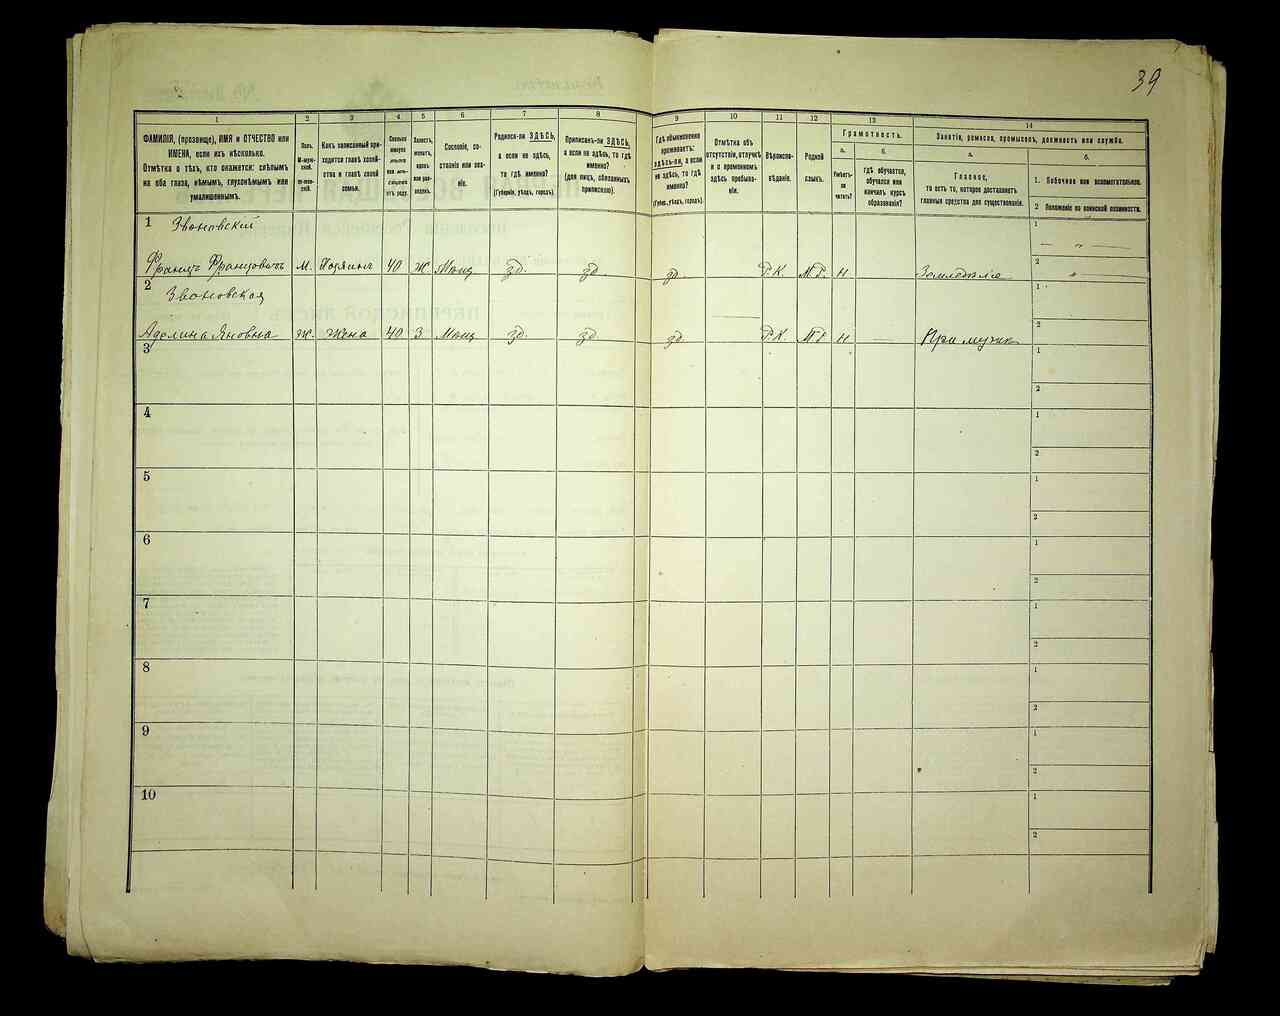 39
1 2 3 4 5 6 7 8 9 10 11 12 13 14
ФАМИЛІЯ, (прозвище), ИМЯ и ОТЧЕСТВО или
ИМЕНА, если ихъ нѣсколько.
Отмѣтка о тѣхъ, кто окажется: слѣпымъ
на оба глаза, нѣмымъ, глухонѣмымъ или
умалишеннымъ.
Полъ.
М-муж-
ской.
Ж-жен-
скій.
Какъ записанный при-
ходится главѣ хозяй-
ства и главѣ своей
семьи.
Сколько
минуло
лѣтъ
или мѣ-
сяцевъ
отъ роду.
Холостъ,
женатъ,
вдовъ
или раз-
веденъ.
Сословіе, со-
стояніе или зва-
ніе.
Родился-ли ЗДѢСЬ,
а если не здѣсь,
то гдѣ именно?
(Губернія, уѣздъ, городъ).
Приписанъ-ли ЗДѢСЬ,
а если не здѣсь, то гдѣ
именно?
(для лицъ, обязанныхъ
припискою).
Гдѣ обыкновенно
проживаетъ:
здѣсь-ли, а если
не здѣсь, то гдѣ
именно?
(Губерн., уѣздъ, городъ).
Отмѣтка объ
отсутствіи, отлучкѣ
и о временномъ
здѣсь пребыва-
ніи.
Вѣроиспо-
вѣданіе.
Родной
языкъ.
Грамотность.
а.
Умѣетъ-
ли
читать?
б.
гдѣ обучается,
обучался или
кончилъ курсъ
образованія?
Занятіе, ремесло, промыселъ, должность или служба.
а.
Главное,
то есть то, которое доставляетъ
главныя средства для существованія.
б.
1. Побочное или вспомогательное.
2 Положеніе по воинской повинности.
1 Звоновский
1 — „ —
Францъ Францовичъ М. Хозяинъ 40 Ж. Мѣщ зд. зд. зд. Р.К. Н Земледѣліе 2 „
2 Звоновская 1
Аделина Яновна Ж. Жена 40 З Мѣщ зд. зд. зд. — Р.К. Н — При мужѣ 2
3 1
2
4 1
2
5 1
2
6 1
2
7 1
2
8 1
2
9 1
2
10 1
2